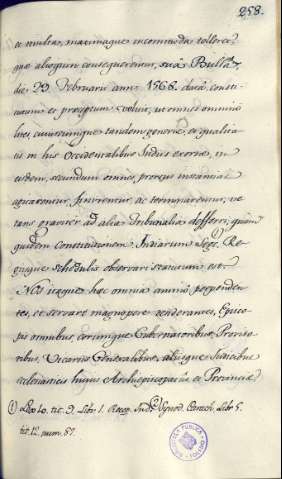 258.
et multa, maximaque incommoda tolleret,
que alioquin consequerentur, suâ Bullâ
die 29 Februarii anni 1568. datâ, consti-
tutum et præceptum voluit, ut omnes omnino
lites, cuiuscumque tandem generis, et qualita-
tis in his Occidentalibus Indiis exortæ, in
eisdem, secundum omnes, prorsus instantias
agitarentur, finirentur ac terminarentur, ve-
tans graviter ad alia Tribunalia defferri; quam
quidem Constitutionem Indiarum Leges, Re-
giisque Schedulis observari statutum est.
Nos itaque hæc omnia animo perpenden-
tes, et servare magnopere desiderantes, Epis-
copis omnibus, eorumque Gubernatoribus, Proviso-
ribus, Vicariis Generalibus, aliisque Judicibus
ecclesiasticis hujus Archiepiscopatus et Provinciæ
(1) Lex 10. tit. 9. Libr. 1. Recop. Ind. Synod. Conch. Libr. 5.
tit. 12. num. 87.
BIBLIOTECA PUBLICA
TOLEDO